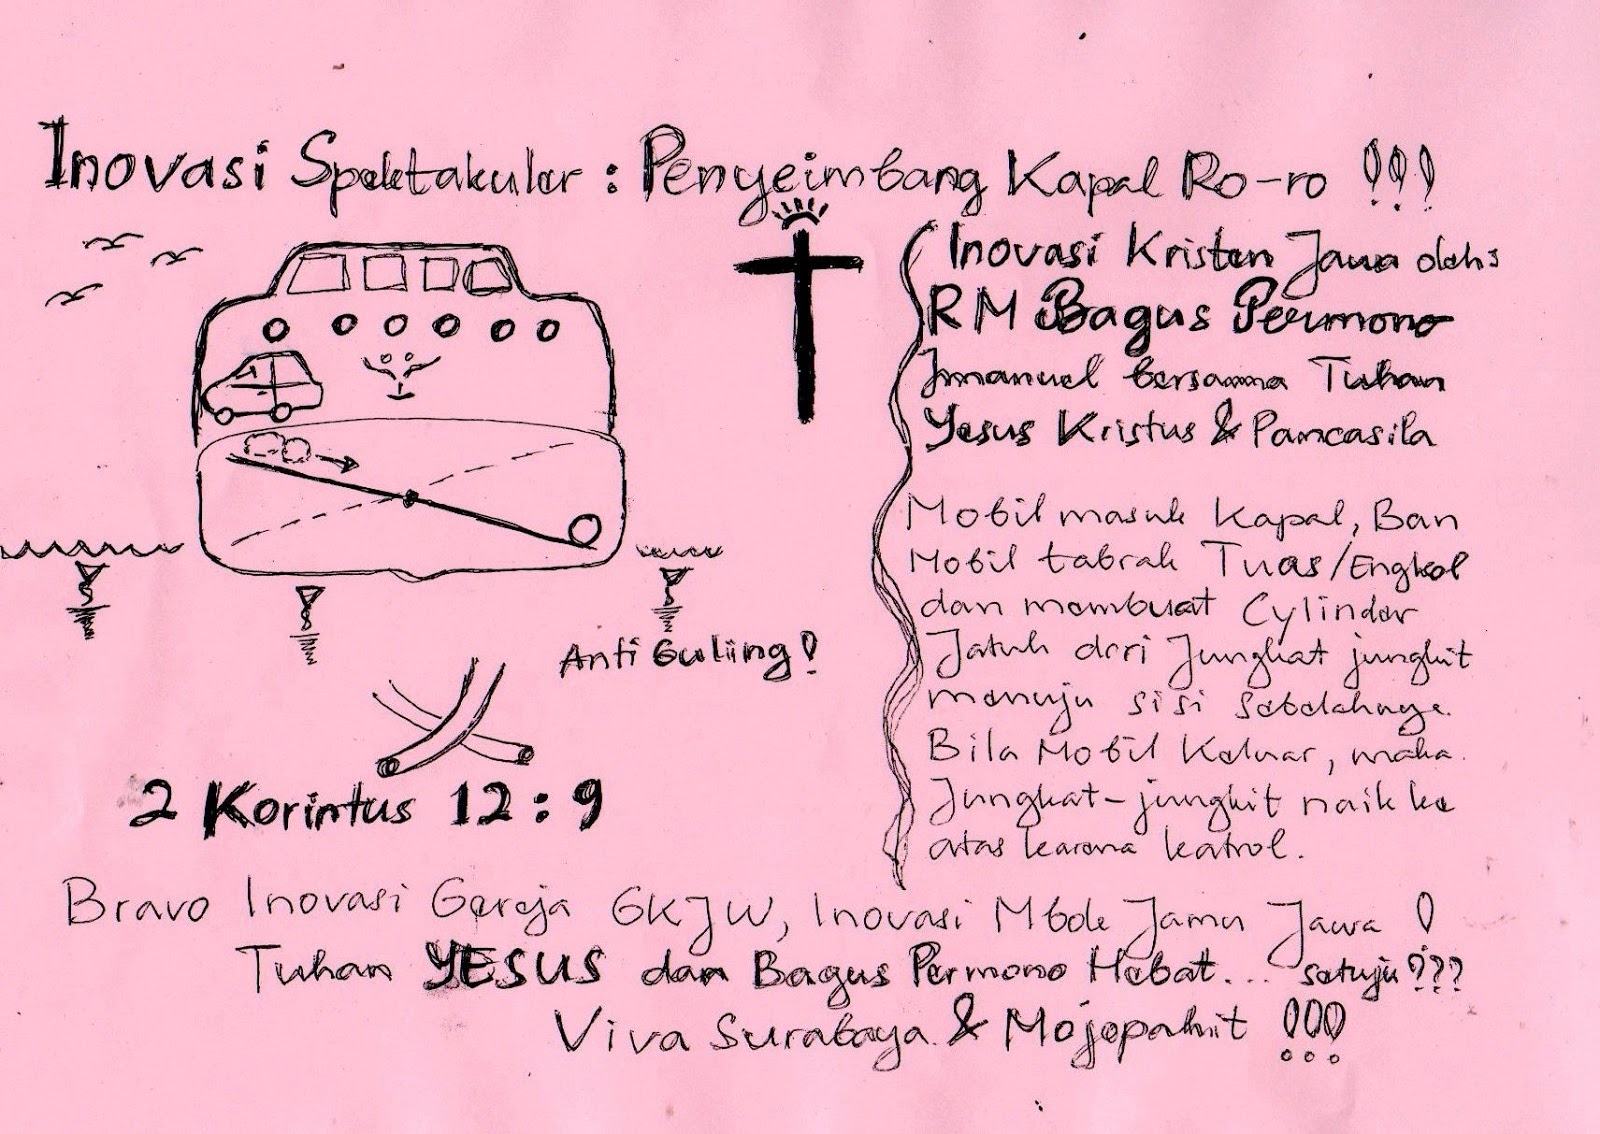 Inovasi Spektakuler : Penyeimbang Kapal Ro-ro !!!
Inovasi Kristen Jawa oleh :
RM Bagus Permono
Imanuel bersama Tuhan
Yesus Kristus & Pancasila
Mobil masuk Kapal, Ban
Mobil tabrak Tuas/Engkol
dan membuat Cylinder
Jatuh dari Jungkat jungkit
menuju sisi sebelahnya.
Bila Mobil Keluar, maka
Jungkat-jungkit naik ke
atas karena katrol.
Anti Guliing !
2 Korintus 12 : 9
Bravo Inovasi Gereja GKJW, Inovasi Mbok Jamu Jawa !
Tuhan YESUS dan Bagus Permono Hebat... setuju ???
Viva Surabaya & Mojopahit !!!